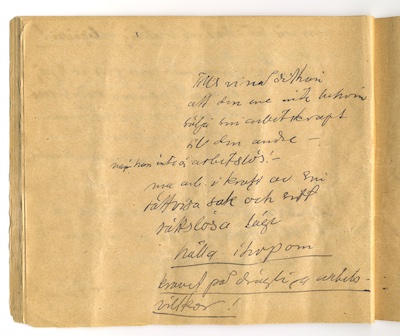 Tills vi nal ditkan
att den ene inte behöva
sälja sin arbetskraft
till den andre —
när han inte är arbetslös! —
ma arb. i kraft av sin
rättvisa sak och sitt
rättslösa läge
hålla ihop om
kravet på drägliga arbets-
villkor!